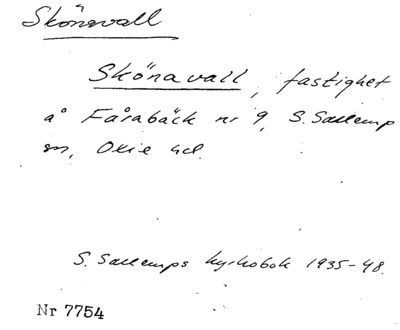 Skönavall
Skönavall, fastighet
å Fårabäck nr 9, S. Sallerup
sn, Oxie hd.
S. Sallerups kyrkobok 1935-48.
Nr 7754